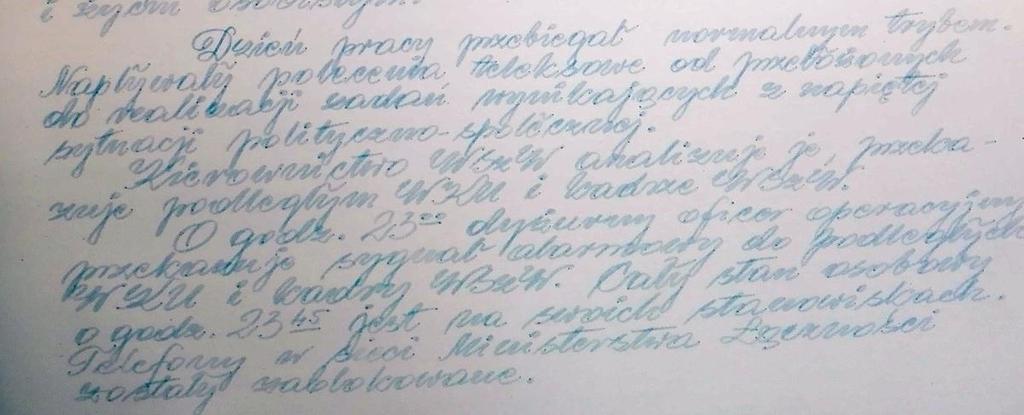 i życiu osobistym.
Dzień pracy przebiegał normalnym trybem.
Napływały polecenia teleksowe od przełożonych
do realizacji zadań wynikających z napiętej
sytuacji polityczno-społecznej.
Kierownictwo WSzW analizuje je, przeka-
zuje podległym WKU i kadrze WSzW.
O godz. 23⁰⁰ dyżurny oficer operacyjny
przekazuje sygnał alarmowy do podległych
WKU i kadry WSzW. Cały stan osobowy
o godz. 23⁴⁵ jest na swoich stanowiskach.
Telefony w sieci Ministerstwa Łączności
zostały zablokowane.